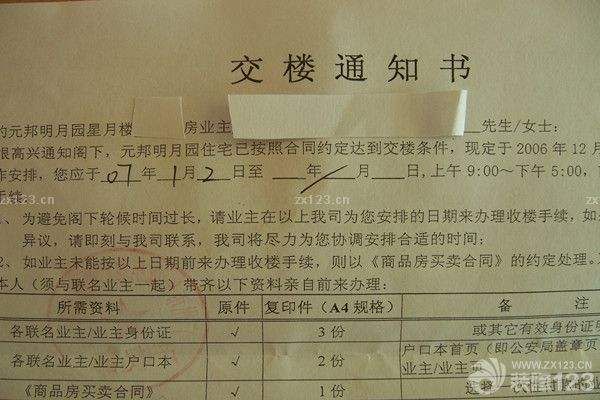 交楼通知书
的元邦明月园星月楼 房业主 先生/女士：
很高兴通知阁下，元邦明月园住宅已按照合同约定达到交楼条件，现定于 2006 年 12 月
作安排，您应于 07 年 1 月 2 日至 年 月 日，上午 9:00～下午 5:00，
手续
、为避免阁下轮候时间过长，请业主在以上我司为您安排的日期来办理收楼手续，如
异议，请即刻与我司联系，我司将尽力为您协调安排合适的时间；
2、如业主未能按以上日期前来办理收楼手续，则以《商品房买卖合同》的约定处理。
本人（须与联名业主一起）带齐以下资料亲自前来办理：
所需资料 原件 复印件（A4 规格） 备 注
各联名业主/业主身份证 √ 3 份 或其它有效身份证明
各联名业主/业主户口本 √ 2 份 户口本首页（即公安局盖章页
业主/业主页
《商品房买卖合同》 √ 1 份
zx123.cn
zx123.cn
zx123.cn
zx123.cn
www.zx123.cn
装修123